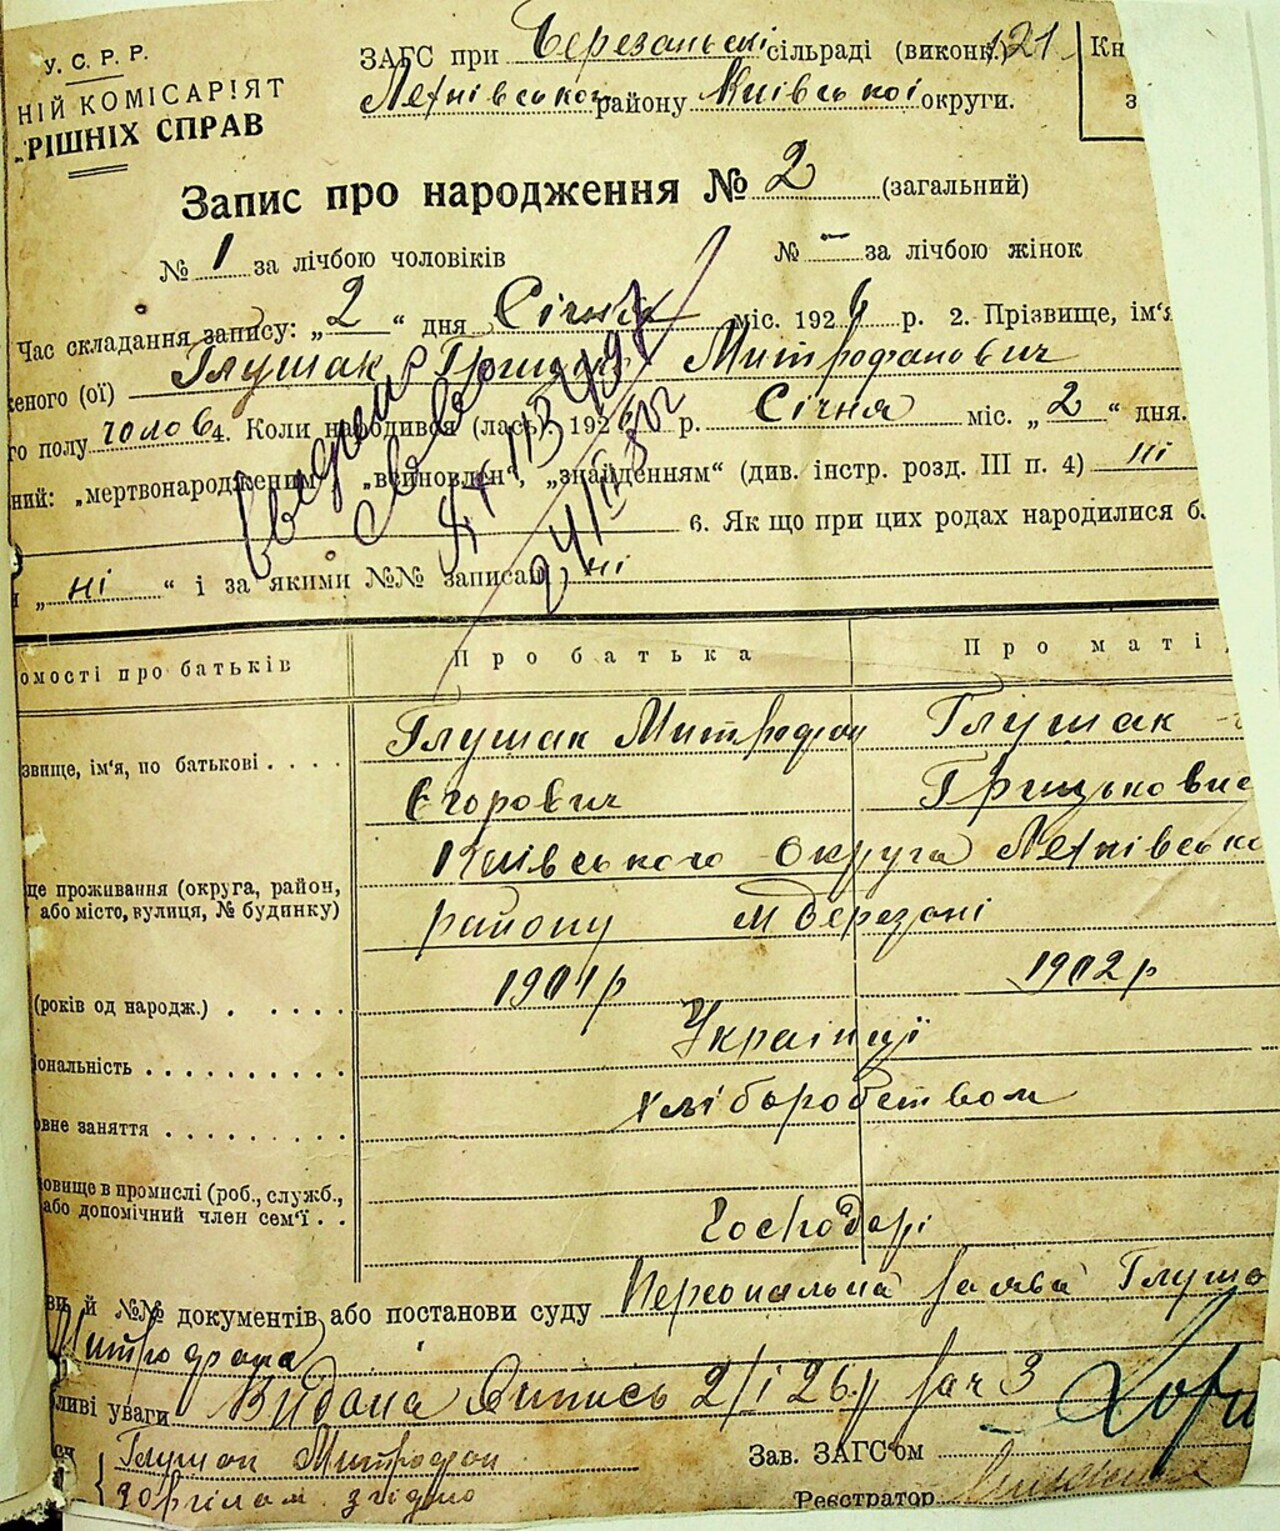 У. С. Р. Р.
НІЙ КОМІСАРІЯТ
РІШНІХ СПРАВ
ЗАГС при Березанській сільраді (виконк.) 121
район у Київської округи.
Кн
з
Запис про народження № 2 (загальний)
№ 1 за лічбою чоловіків № – за лічбою жінок
Час складання запису: „2“ дня Січня міс. 1926 р. 2. Прізвище, ім'я
женого (ої) Глушак Григорій Митрофанович
го полу чолов 4. Коли народився (лась). 1926 р. Січня міс. „2“ дня.
ний: „мертвонародженим“, „всиновлен“, „знайденням“ (див. інстр. розд. III п. 4) ні
6. Як що при цих родах народилися б
„ні“ і за якими №№ записані ні
омості про батьків Про батька Про маті
звище, ім'я, по батькові . . . . Глушак Митрофан Глушак
Єгорович Грицьковна
Київського Округа
це проживання (округа, район,
або місто, вулиця, № будинку)
району м Березані
(років од народж.) . . . . . 1901 р 1902 р
іональність . . . . . . . . . . Українці
овне заняття . . . . . . . . . хліборобством
овище в промислі (роб., служб.,
або допомічний член сем'ї . . Господарі
ви й №№ документів або постанови суду Персональна заява Глуша
Митрофана
ливі уваги Видана Випись 2/І 26 р за ч 3
Глушак Митрофан
Зав. ЗАГС'ом
Реєстратор